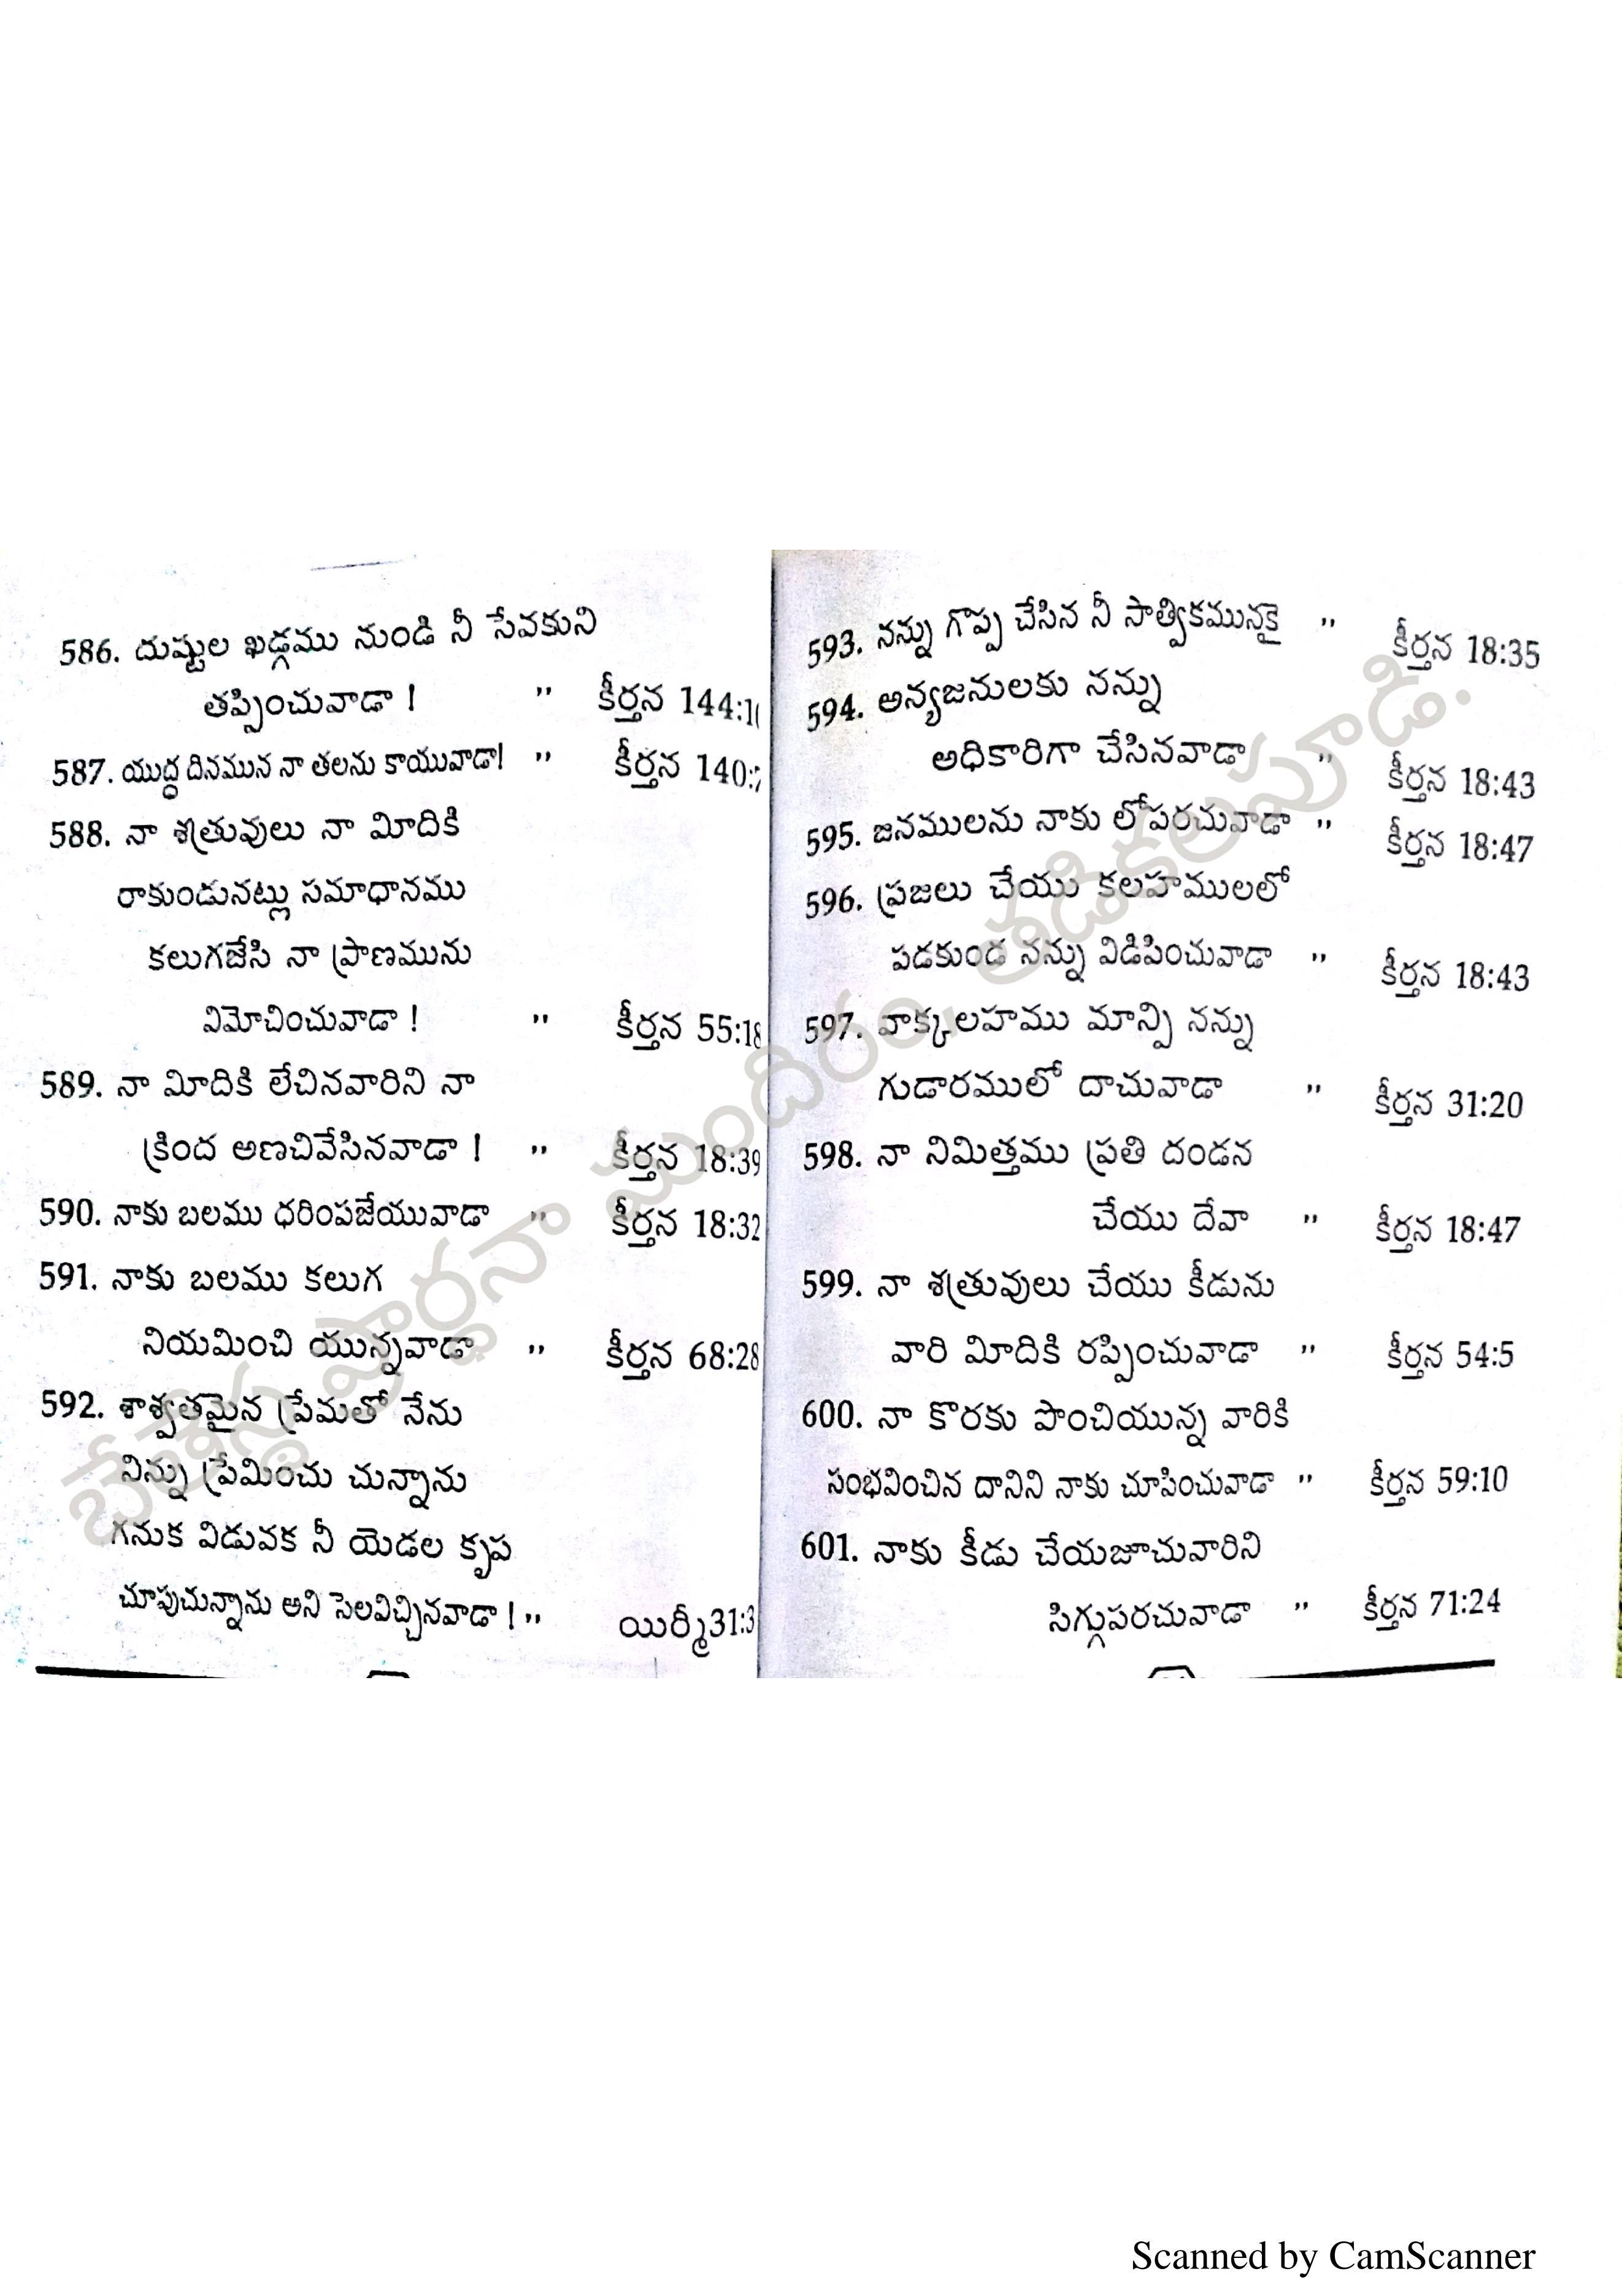 586. దుష్టుల ఖడ్గము నుండి నీ సేవకుని
తప్పించువాడా ! " కీర్తన 144:1
587. యుద్ధ దినమున నా తలను కాయువాడా! " కీర్తన 140:7
588. నా శత్రువులు నా మీదికి
రాకుండునట్లు సమాధానము
కలుగజేసి నా ప్రాణమును
విమోచించువాడా ! " కీర్తన 55:18
589. నా మీదికి లేచినవారిని నా
క్రింద అణచివేసినవాడా ! " కీర్తన 18:39
590. నాకు బలము ధరింపజేయువాడా " కీర్తన 18:32
591. నాకు బలము కలుగ
నియమించి యున్నవాడా " కీర్తన 68:28
592. శాశ్వతమైన ప్రేమతో నేను
నిన్ను ప్రేమించు చున్నాను
గనుక విడువక నీ యెడల కృప
చూపుచున్నాను అని సెలవిచ్చినవాడా ! " యిర్మీ31:3
593. నన్ను గొప్ప చేసిన నీ సాత్వికమునకై " కీర్తన 18:35
594. అన్యజనులకు నన్ను
అధికారిగా చేసినవాడా " కీర్తన 18:43
595. జనములను నాకు లోపరచువాడా " కీర్తన 18:47
596. ప్రజలు చేయు కలహములలో
పడకుండ నన్ను విడిపించువాడా " కీర్తన 18:43
597. వాక్కలహము మాన్పి నన్ను
గుడారములో దాచువాడా " కీర్తన 31:20
598. నా నిమిత్తము ప్రతి దండన
చేయు దేవా " కీర్తన 18:47
599. నా శత్రువులు చేయు కీడును
వారి మీదికి రప్పించువాడా " కీర్తన 54:5
600. నా కొరకు పొంచియున్న వారికి
సంభవించిన దానిని నాకు చూపించువాడా " కీర్తన 59:10
601. నాకు కీడు చేయజూచువారిని
సిగ్గుపరచువాడా " కీర్తన 71:24
ప్రార్థనా మందిరం, తాడికలపూడి.
Scanned by CamScanner